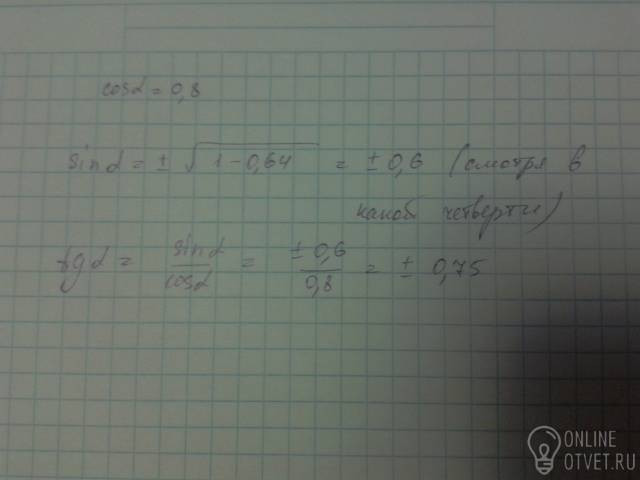 cosα = 0,8
sinα = ± √1-0,64 = ± 0,6 (смотря в
какой четверти)
tgα = sinα/cosα = ± 0,6/0,8 = ± 0,75
ONLINE
OTVET.RU